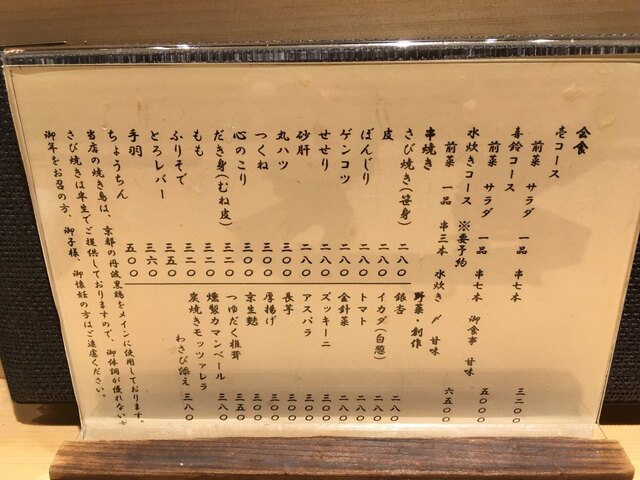 会食
壱コース
前菜 サラダ 一品 串七本 三二〇〇
喜鈴コース
前菜 サラダ 一品 串七本 御食事 甘味 五〇〇〇
水炊きコース ※要予約
前菜 一品 串三本 水炊き 〆 甘味 六五〇〇
串焼き
さび焼き(笹身) 二八〇
皮 二八〇
ぼんじり 二八〇
ゲンコツ 二八〇
せせり 二八〇
砂肝 二八〇
丸ハツ 三〇〇
つくね 三〇〇
心のこり 三〇〇
だき身(むね皮) 三二〇
もも 三二〇
ふりそで 三五〇
とろレバー 三六〇
手羽
ちょうちん 五〇〇
野菜・創作
銀杏 二八〇
イカダ(白葱) 二八〇
トマト 二八〇
金針菜 二八〇
ズッキーニ 三〇〇
アスパラ 三〇〇
長芋 三〇〇
厚揚げ 三〇〇
京生麩 三〇〇
つゆだく椎茸 三五〇
燻製カマンベール 三八〇
炭焼きモッツァレラ
わさび添え 三八〇
当店の焼き鳥は、京都の丹波黒鶏をメインに使用しております。
さび焼きは半生でご提供しておりますので、御体調が優れない方
御年をお召の方、御子様、御懐妊の方はご遠慮ください。